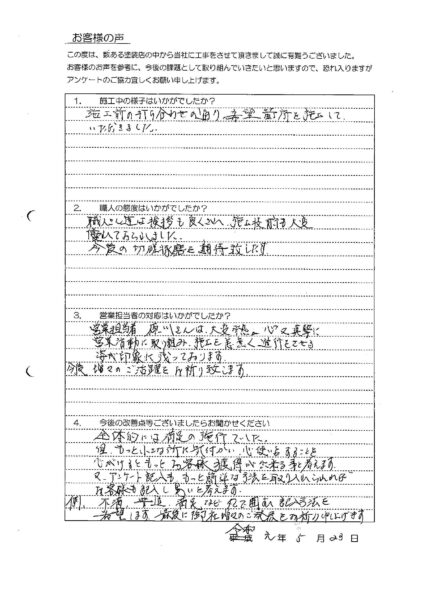 お客様の声
この度は、数ある塗装店の中から当社に工事をさせて頂きまして誠に有難うございました。
お客様のお声を参考に、今後の課題として取り組んでいきたいと思いますので、恐れ入りますが
アンケートのご協力宜しくお願い申し上げます。
1. 施工中の様子はいかがでしたか？
施工前の打ち合わせの通り、希望箇所を施工して
いただきました。
2. 職人の態度はいかがでしたか？
職人さん達は挨拶も良くされ、施工技術も大変
優れておられました。
今後の切磋琢磨を期待致します。
3. 営業担当者の対応はいかがでしたか？
営業担当者 原川さんは、大変 真摯に
営業活動に取り組み、施工を 進行させる
姿が印象に残っております。
今後 増々のご活躍をお祈り致します。
4. 今後の改善点等ございましたらお聞かせください
全体的には満足の施行でした。
但、もっと小さな所に気付かい、心使いすることを
心がけるともっとお客様獲得が出来る事と考えます。
又、アンケート記入も、もっと簡単な方法を取り入れられれば
お客様も記入し易いと考えます。
例、不満 普通 満足 など 丸で囲む記入方法を
希望します 最後に御社増々のご発展をお祈り申し上げます
令和
平成 元年 5月 23日